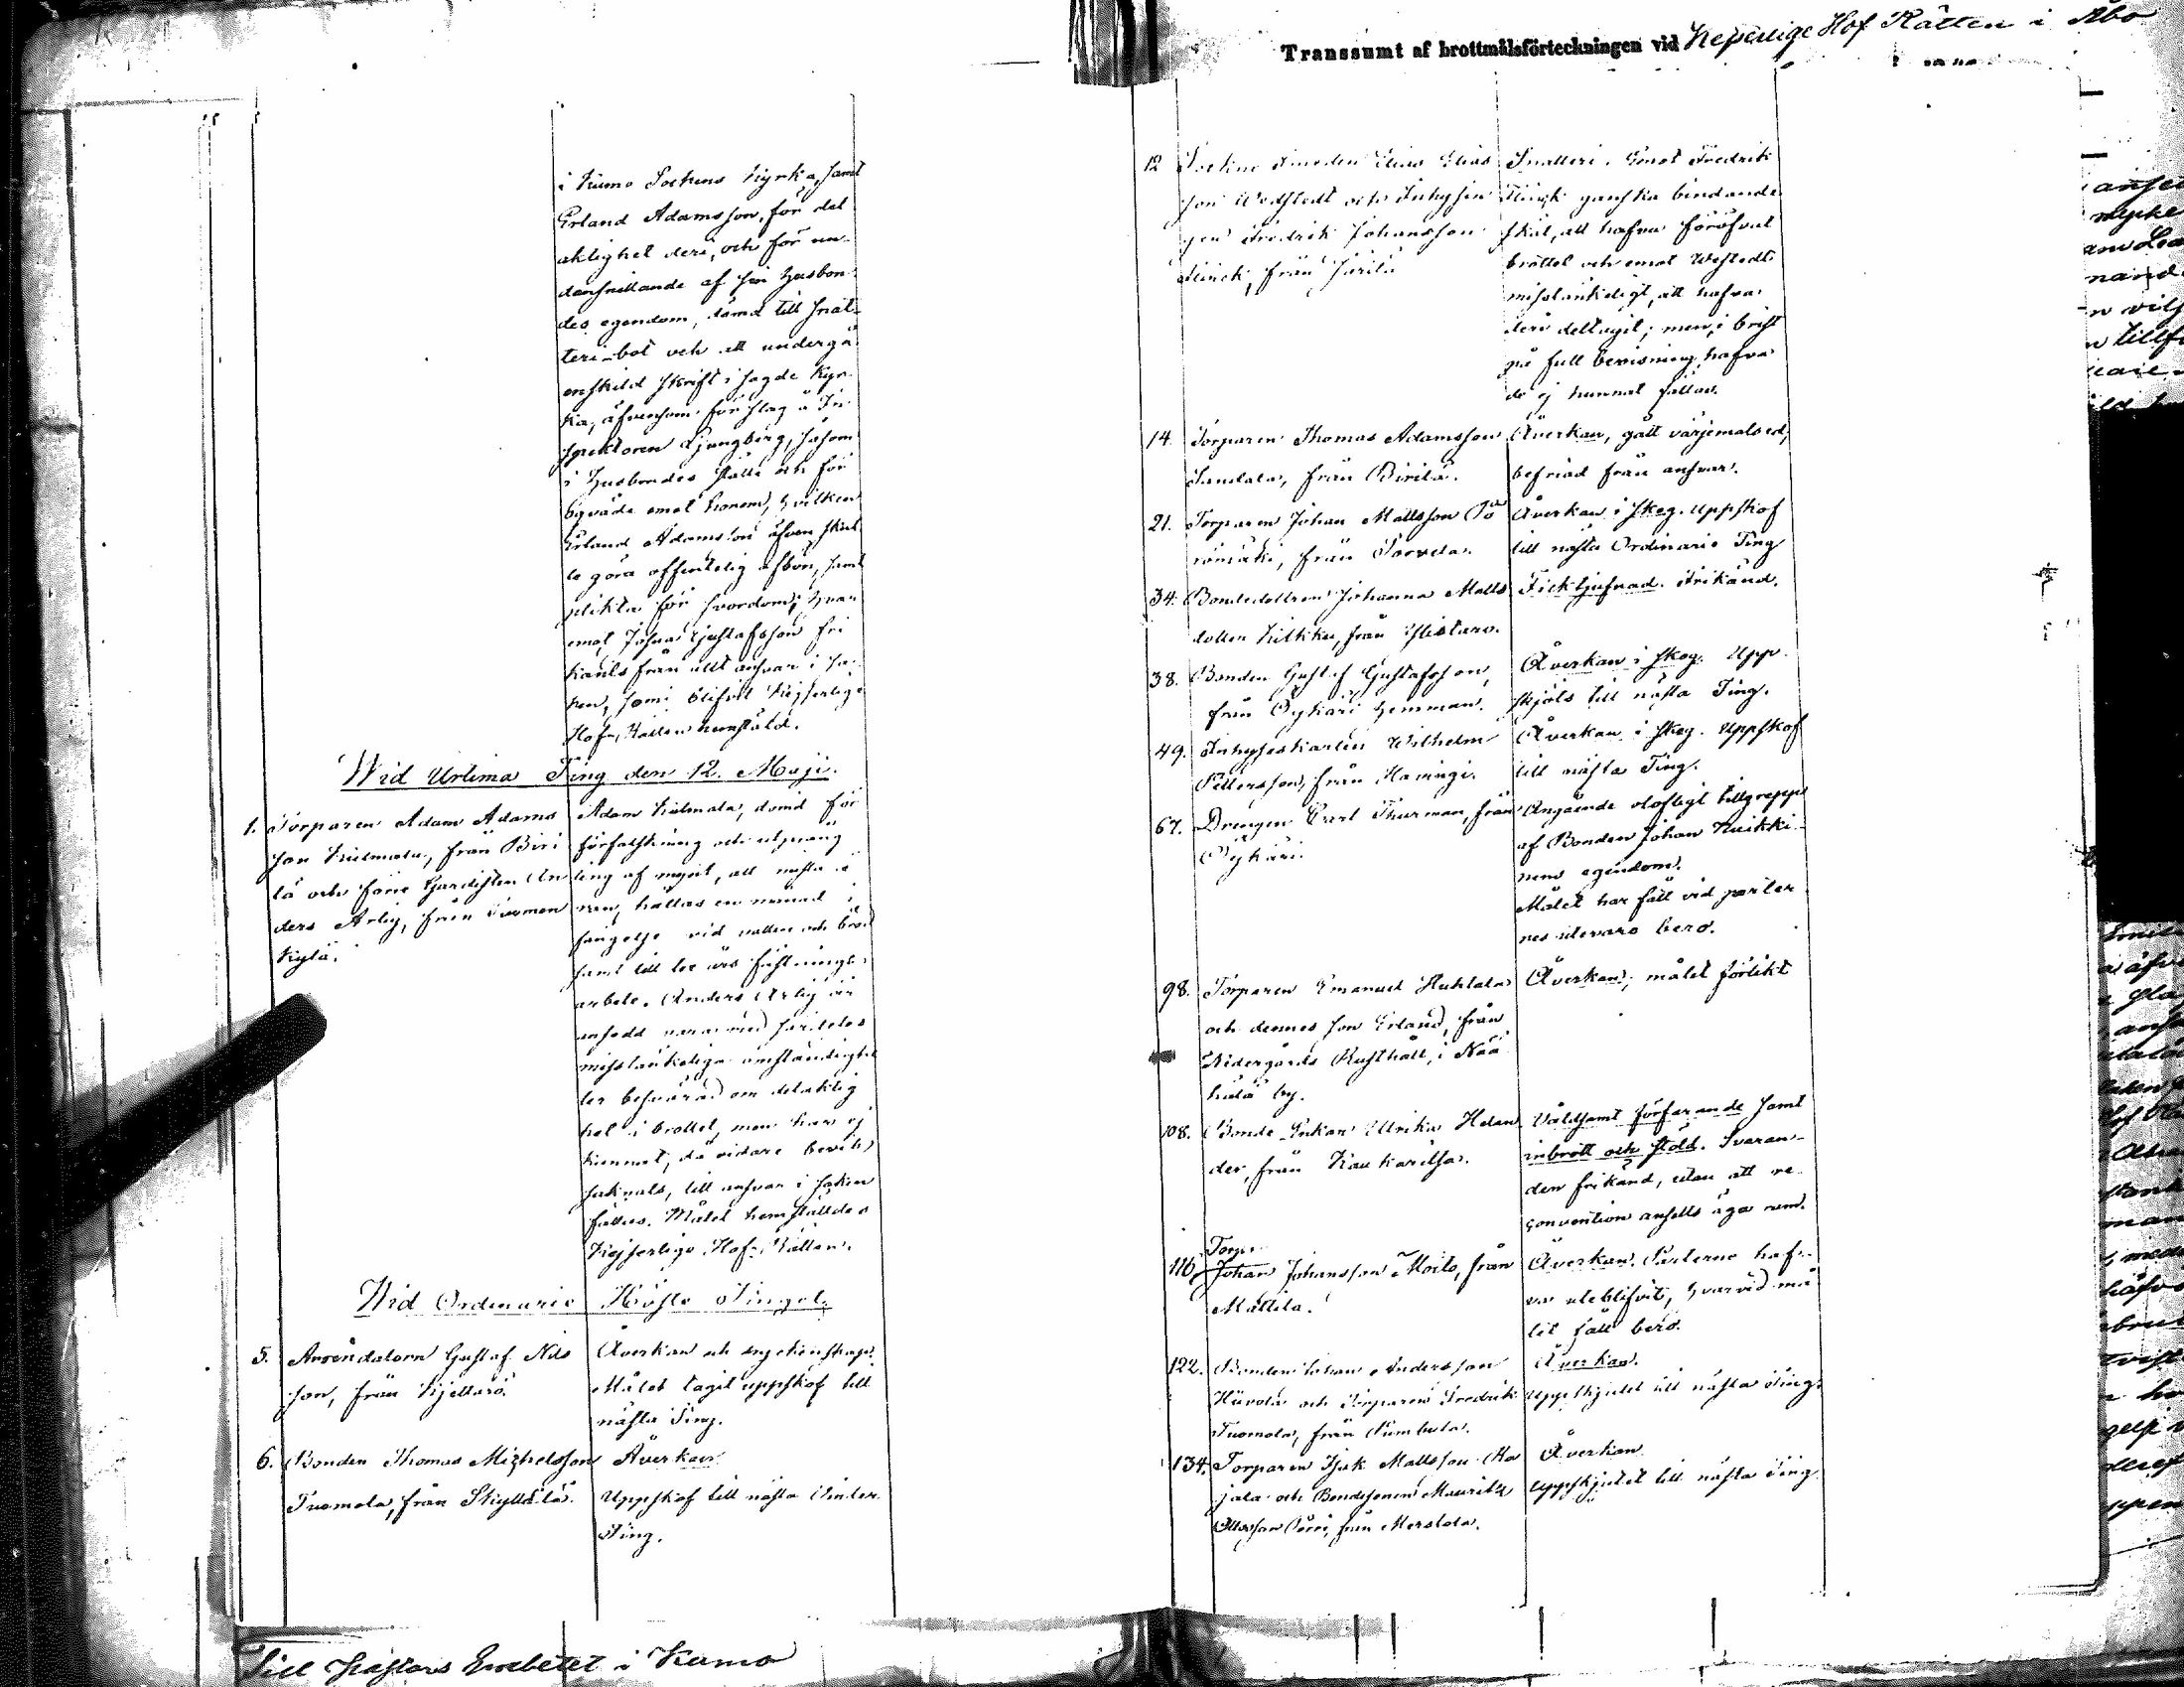 i Kumo Sockens Kyrka, samt
Erland Adamsson, för del
aktighet deri, och för un-
dansnillande af sin Husbon
des egendom, dömd till snat-
teri-bot och att undergå
enskild skrift i sagde Kyr
ka, äfvensom för slag å In
spektoren Ljungberg, såsom
i Husbondes ställe och för
oqväde emot honom, hvilken
Erland Adamsson äfven skul
le göra offentelig afbön, samt
plikta för svordom; hvar
emot Josua Gustafsson fri
känts från allt ansvar i sa-
ken, som blifvit Kejserlige
Hof-Rätten hemstäld.
Wid Urtima Ting den 12. Maji.
1. Torparen Adam Adams
son Kulmala, från Biri
lä och förre Gardisten An
ders Arlig, från
Kylä.
Adam Kulmala, dömd för
förfalskning och utpräng
ling af mynt, att mista ä
ran, hållas en månad i
fängelse vid vatten och bröd
samt till tre års fästnings-
arbete. Anders Arlig är
ansedd vara med särdeles
misstänkeliga omständighe
ter besvärad om delaktig
het i brottet, men har ej
kunnat, då vidare bevis
saknats, till ansvar i saken
fällas. Målet hemställdes
Kejserlige Hof-Rätten.
Wid Ordinarie Höste Tinget.
5. Arrendatorn Gustaf Nils
son, från Kjettarö.
Åverkan och
Målet tagit uppskof till
nästa Ting.
6. Bonden Thomas Michelsson
Tuomola, från Skyttälä.
Åverkan
Uppskof till nästa Vinter
Ting.
Till Pastors Embetet i Kumo
Transsumt af brottmålsförteckningen vid Kejserlige Hof Rätten i Åbo
12 Sockne Smeden Elias Elias
son Wedstedt och Inhyses
gen Fredrik Johansson
Flinck, från
Snatteri. Emot Fredrik
Flinck ganska bindande
skäl, att hafva föröfvat
brottet och emot Westedt
misstänkeligt, att hafva
deri deltagit; men, i brist
på full bevisning, hafva
de ej kunnat fällas.
14. Torparen Thomas Adamsson
Sandala, från Birilä.
Åverkan, gått värjemålsed,
befriad från ansvar.
21. Torparen Johan Mattsson Pö
römäki, från Sorvola.
Åverkan i skog. Uppskof
till nästa Ordinarie Ting
34. Bondedottren Johanna Matts
dotter Kilkku, från Ylistaro.
Ficktjufnad. Frikänd.
38. Bonden Gustaf Gustafsson,
från Öykäri hemman.
Åverkan i skog. Upp-
skjöts till nästa Ting.
49. Inhyseskarlen Wilhelm
Pettersson, från Haringi.
Åverkan i skog. Uppskof
till nästa Ting.
67. Drengen Carl Thurman, från
Öykäri.
Angående olofligt tillgrepp
af Bonden Johan Kuikki-
nens egendom.
Målet har fått vid parter
nes utevaro bero.
98. Torparen Emanuel Huhtala
och dennes son Erland, från
Nidergårds Rusthåll, i Nää
hälä by.
Åverkan; målet förlikt
108. Bonde Enkan Ulrika Helan
der, från Kaukaritsa.
Våldsamt förfarande samt
inbrott och stöld. Svaran-
den frikänd, utan att re
convention ansetts äga rum.
116. Torp.
Johan Johansson Moito, från
Mattila.
Åverkan. Parterne haf-
va uteblifvit, hvarvid må
let fått bero.
122. Bonden Johan Andersson
Hüvola och Torparen Fredrik
Tuomola, från Pumbula.
Åverkan.
Uppskjutet till nästa Ting.
134. Torparen Isak Mattsson Ha
jala och Bondesonen Mauritz
Mattsson från Merstola.
Åverkan
Uppskjutet till nästa Ting